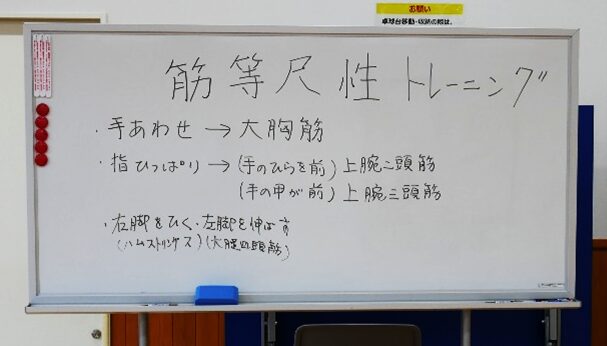 お願い
卓球台移動・収納の際は、
筋等尺性トレーニング
・手あわせ→大胸筋
・指ひっぱり→(手のひらを前)上腕二頭筋
(手の甲が前)上腕三頭筋
・右脚をひく・左脚を伸ばす
(ハムストリングス)(大腿四頭筋)